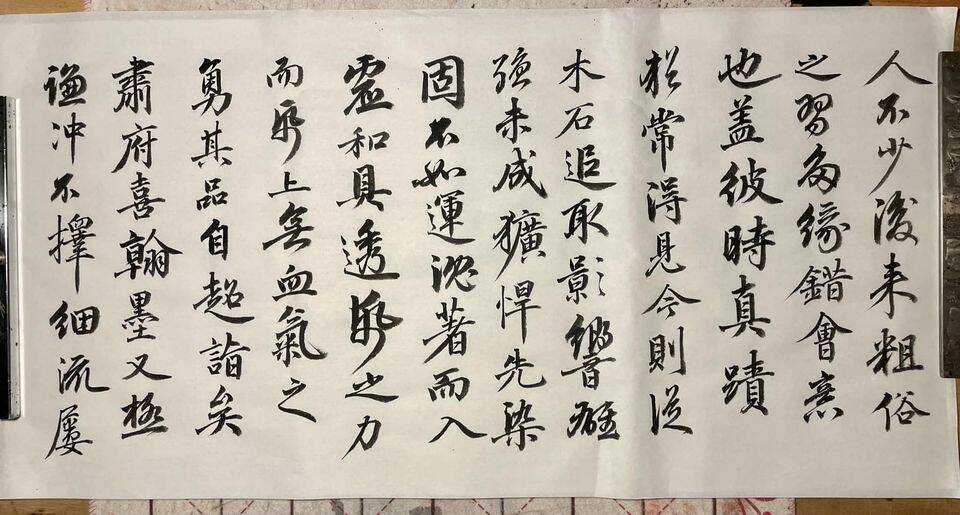 人不少後来粗俗
之習多緣錯會意
也盖彼時真蹟
猶常得見今則從
木石追取影響雄
强未成獷悍先染
固不如運沈著而入
虛和具透帋之力
而帋上無血氣之
勇其品自超詣矣
肅府喜翰墨又極
謙冲不擇細流屡